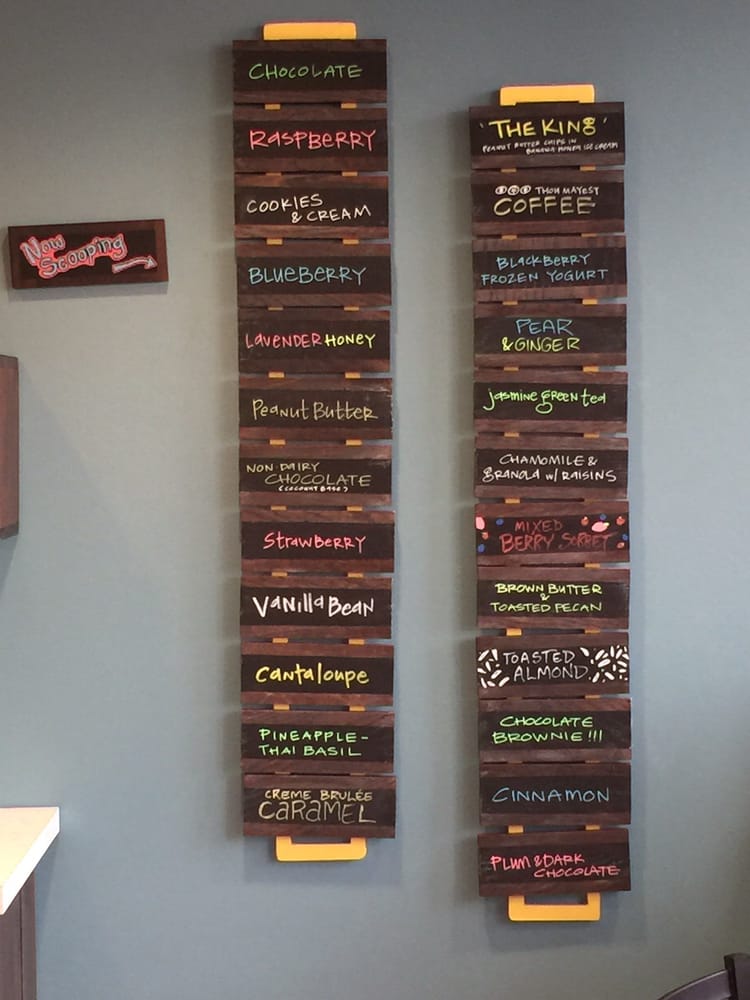 Now
Scooping
CHOCOLATE
RASPBERRY
COOKIES
& CREAM
BLUEBERRY
LAVENDER HONEY
Peanut Butter
NON-DAIRY
CHOCOLATE
(COCONUT BASE)
StrawBerry
Vanilla Bean
Cantaloupe
PINEAPPLE-
THAI BASIL
CREME BRULÉE
CARAMEL
'THE KING'
PEANUT BUTTER CHIPS IN
BANANA HONEY ICE CREAM
THOU MAYEST
COFFEE
BLACKBERRY
FROZEN YOGURT
PEAR
& GINGER
jasmine green tea
CHAMOMILE &
GRANOLA W/ RAISINS
MIXED
BERRY SORBET
BROWN BUTTER
&
TOASTED PECAN
TOASTED
ALMOND
CHOCOLATE
BROWNIE !!!
CINNAMON
PLUM & DARK
CHOCOLATE